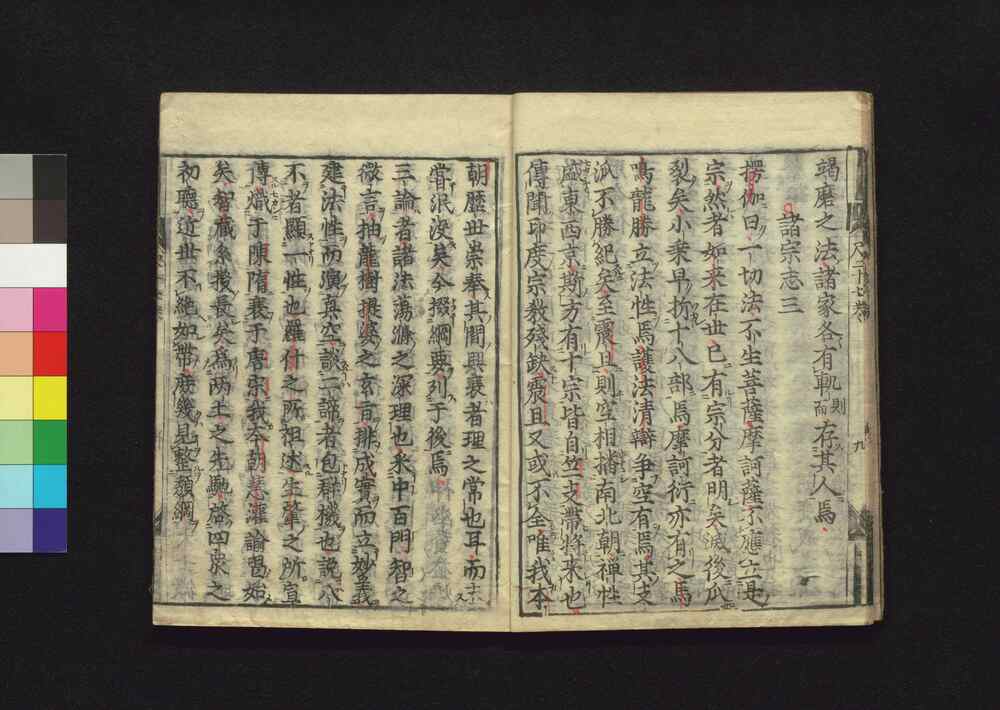 竭磨之法諸家各有軌則而存其人焉
諸宗志三
楞伽曰一切法不生菩薩摩訶薩不應立是
宗然者如來在世已有宗分者明矣滅後瓜
裂矣小乘早折十八部焉摩訶衍亦有之馬
鳴龍勝立法性焉護法清辯争空有焉其支
派不勝紀矣至震旦則空相搐南北朝禪性
盛東西京斯方有十宗皆自竺支帶將來也
傳聞印度宗教殘缺震旦又或不全唯我本
朝歷世崇奉其間興衰者理之常也耳而
嘗泯没矣今掇綱要列于後焉
三論者諸法蕩滌之深理也禀中百門智之
微言抽龍樹提婆之玄旨排成實而立妙義
建法性而演真空談二諦者包群機也說八
不者顯一性也羅什之所祖述生肇之所
傳熾于陳隋衰于唐宋我本朝慧灌諭習始
矣智藏糸授長矣為兩土之先馳啓四衆之
初聽近世不絶如帶庶幾見整頽綱
九